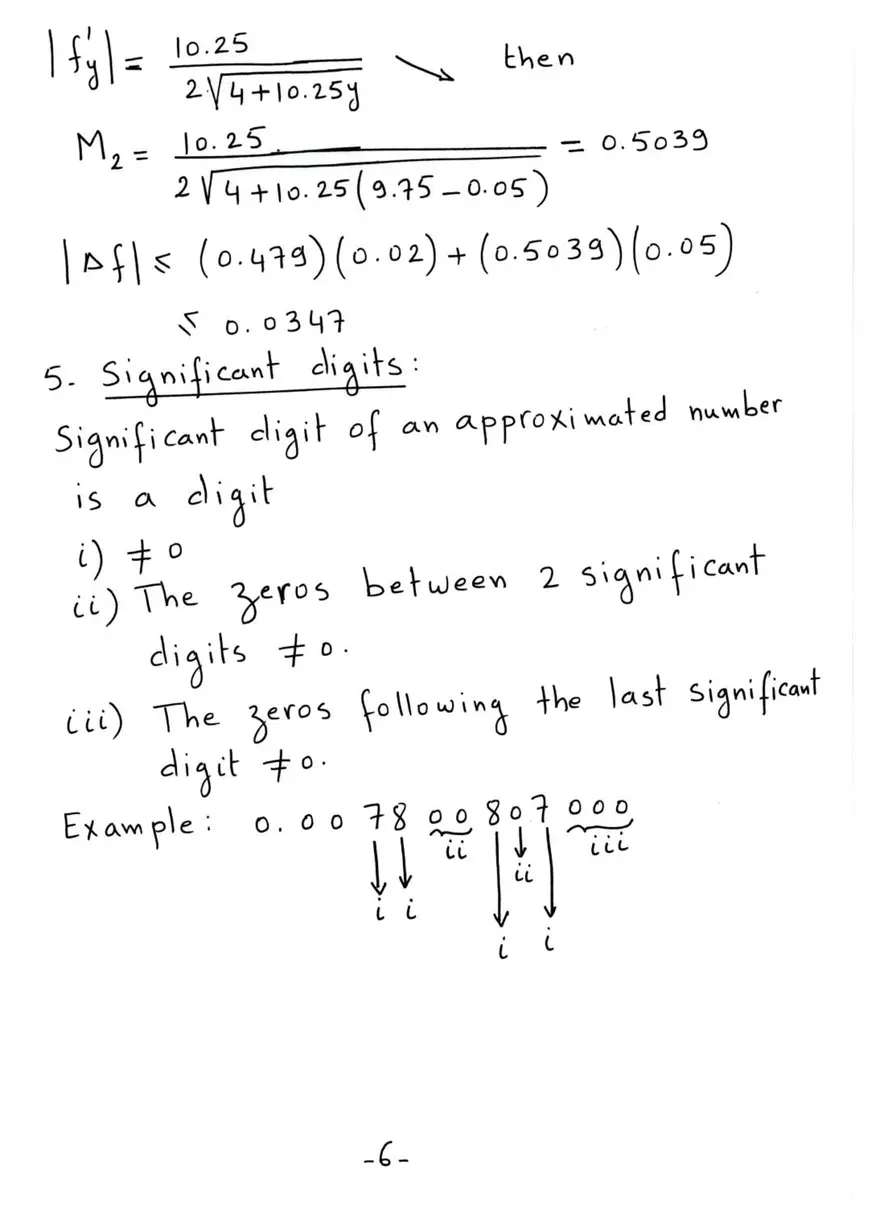 |f'y| = 10.25 / 2√4+10.25y ↘ then
M₂ = 10.25 / 2√4+10.25(9.75-0.05) = 0.5039
|Δf| ≤ (0.479)(0.02)+(0.5039)(0.05)
≤ 0.0347
5. Significant digits:
Significant digit of an approximated number
is a digit
i) ≠ 0
ii) The zeros between 2 significant
digits ≠ 0.
iii) The zeros following the last significant
digit ≠ 0.
Example: 0.0078 00 807 000
ii iii
ii
i i
i i
-6-